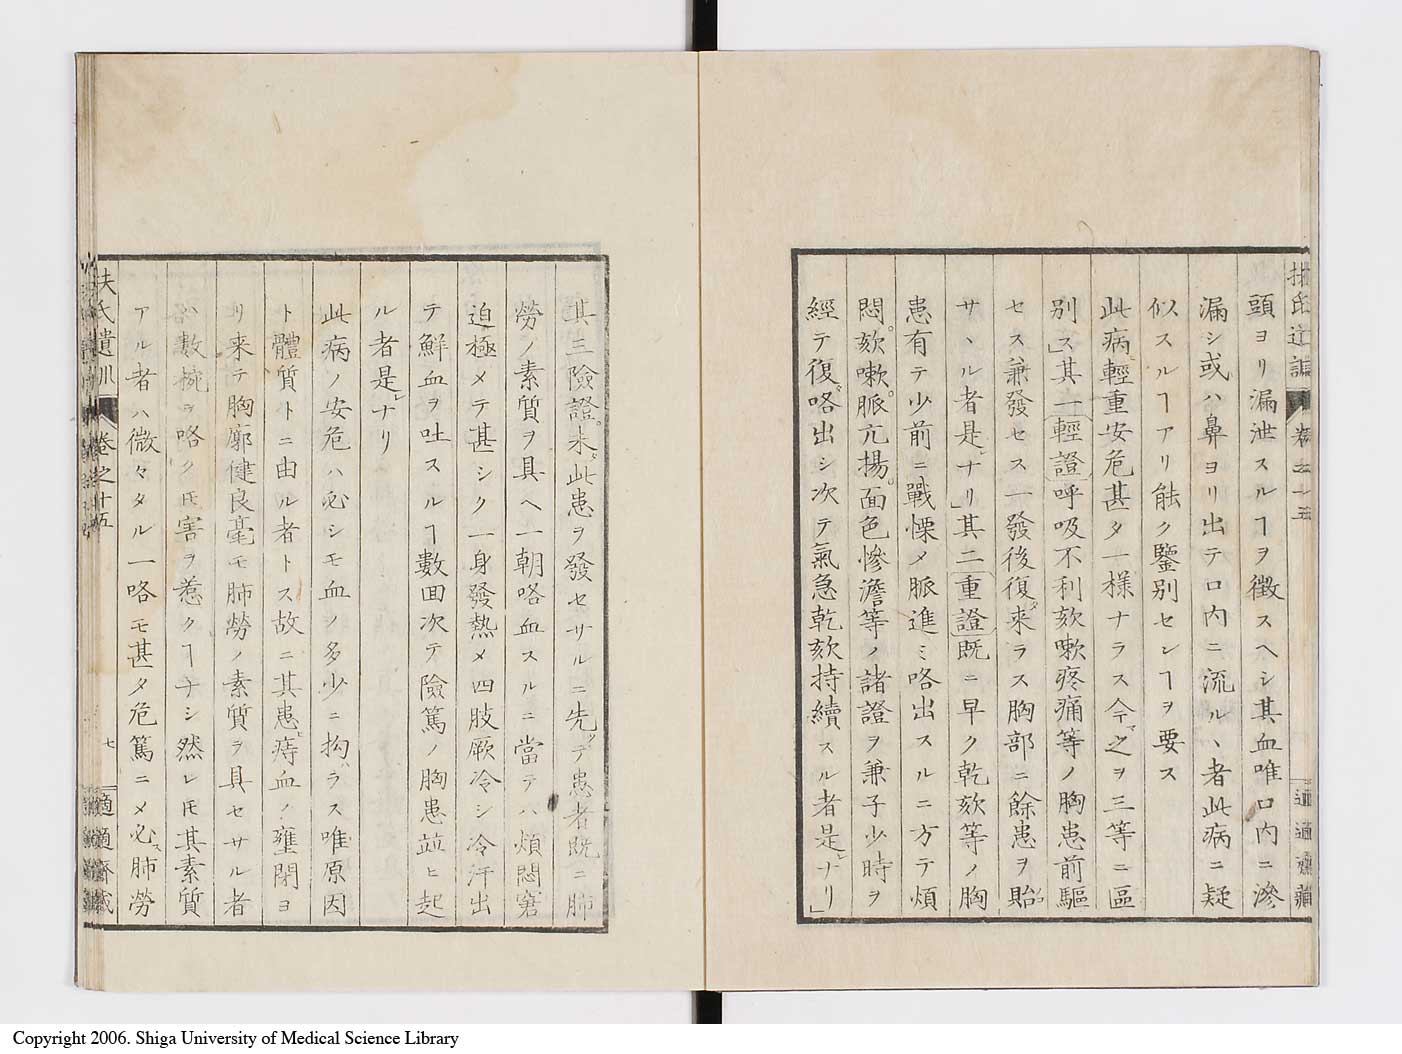 扶氏遺訓 卷之十五 適適齋藏
頭ヨリ漏泄スルヿヲ徴スヘシ其血唯口內ニ滲
漏シ或ハ鼻ヨリ出テ口內ニ流ル、者此病ニ疑
似スルヿアリ能ク鑒別センヿヲ要ス
此病輕重安危甚タ一樣ナラス今之ヲ三等ニ區
別ス」其一輕證呼吸不利欬嗽疼痛等ノ胸患前驅
セス兼發セス一發後復来ラス胸部ニ餘患ヲ貽
サ、ル者是ナリ」其二重證既ニ早ク乾欬等ノ胸
患有テ少前ニ戰慄メ脈進ミ咯出スルニ方テ煩
悶欬嗽脈亢揚面色慘澹等ノ諸證ヲ兼子少時ヲ
經テ復咯出シ次テ氣急乾欬持續スル者是ナリ」
其三險證未此患ヲ發セサルニ先テ患者既ニ肺
勞ノ素質ヲ具ヘ一朝咯血スルニ當テハ煩悶窘
迫極メテ甚シク一身發熱メ四肢厥冷シ冷汗出
テ鮮血ヲ吐スルヿ數回次テ險篤ノ胸患並ヒ起
ル者是ナリ
此病ノ安危ハ必シモ血ノ多少ニ拘ラス唯原因
ト體質トニ由ル者トス故ニ其患痔血ノ壅閉ヨ
リ来テ胸廓健良毫モ肺勞ノ素質ヲ具セサル者
ハ數椀ヲ咯クトモ害ヲ惹クヿナシ然レトモ其素質
アル者ハ微々タル一咯モ甚タ危篤ニメ必肺勞
扶氏遺訓 卷之十五 七 適適齋藏